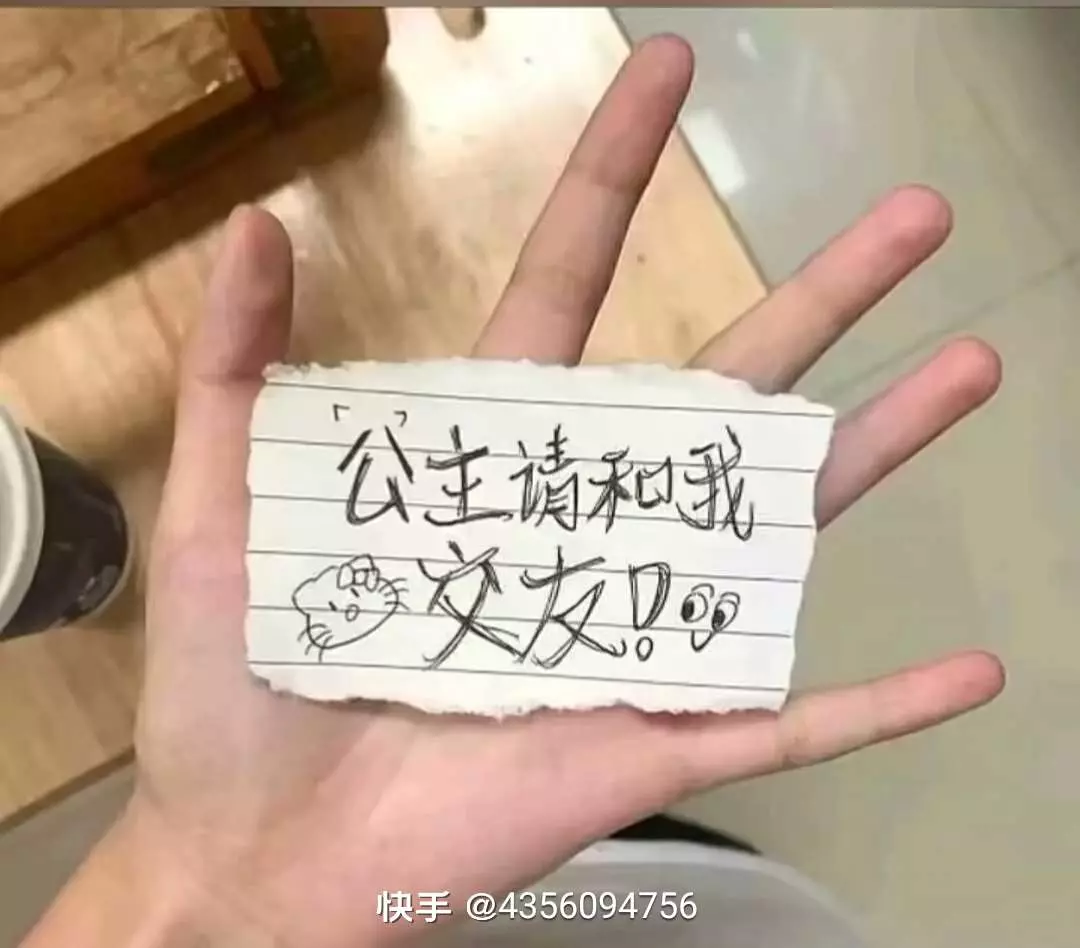 「公」主请和我
交友!
快手 @4356094756